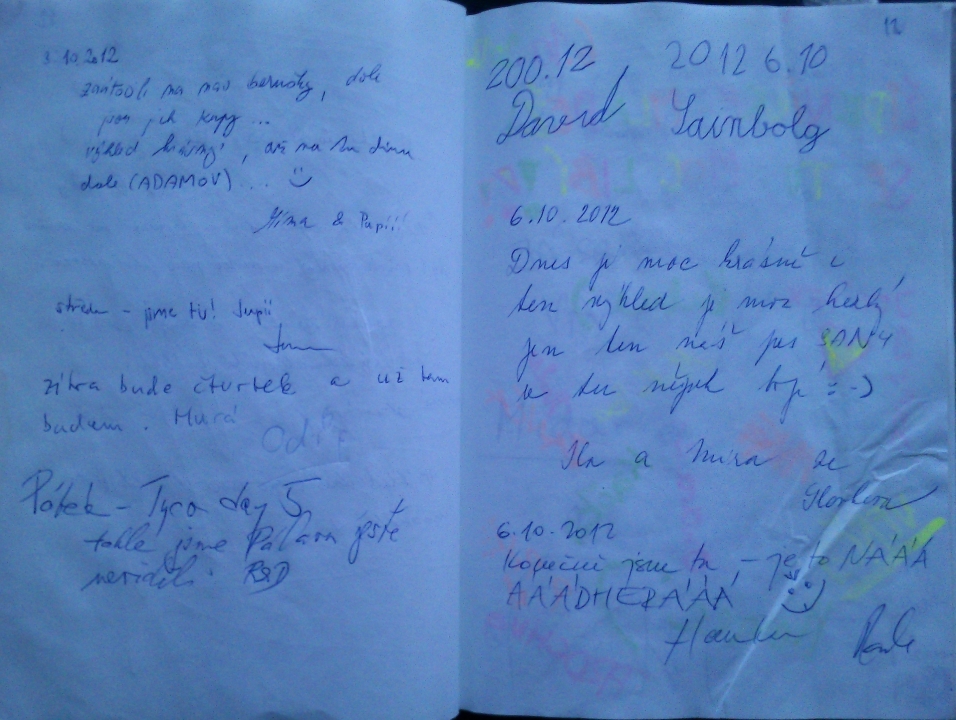 3.10.2012
zaútočili na nás berušky, dole
jen jak kapy...
výhled krásný, až na tu dámu
dole (ADAMOV)...
Míma & Papi!!
středa - jsme tu! Jupíí
zítra bude čtvrtek a už tam
budem. Hurá
Pátek - Tyco day 5
tohle jsme Pálavu ještě
neviděli. R&D
12
200.12, 2012 6.10
David Sainbolg
6.10.2012
Dnes je moc krásně i
ten výhled je moc hezký
jen ten náš pes SANY
se tu nějak bojí :-)
a Míra ze
6.10.2012
Konečně jsme tu - je to NÁÁÁ
ÁÁÁDHERÁÁÁ
Hanka